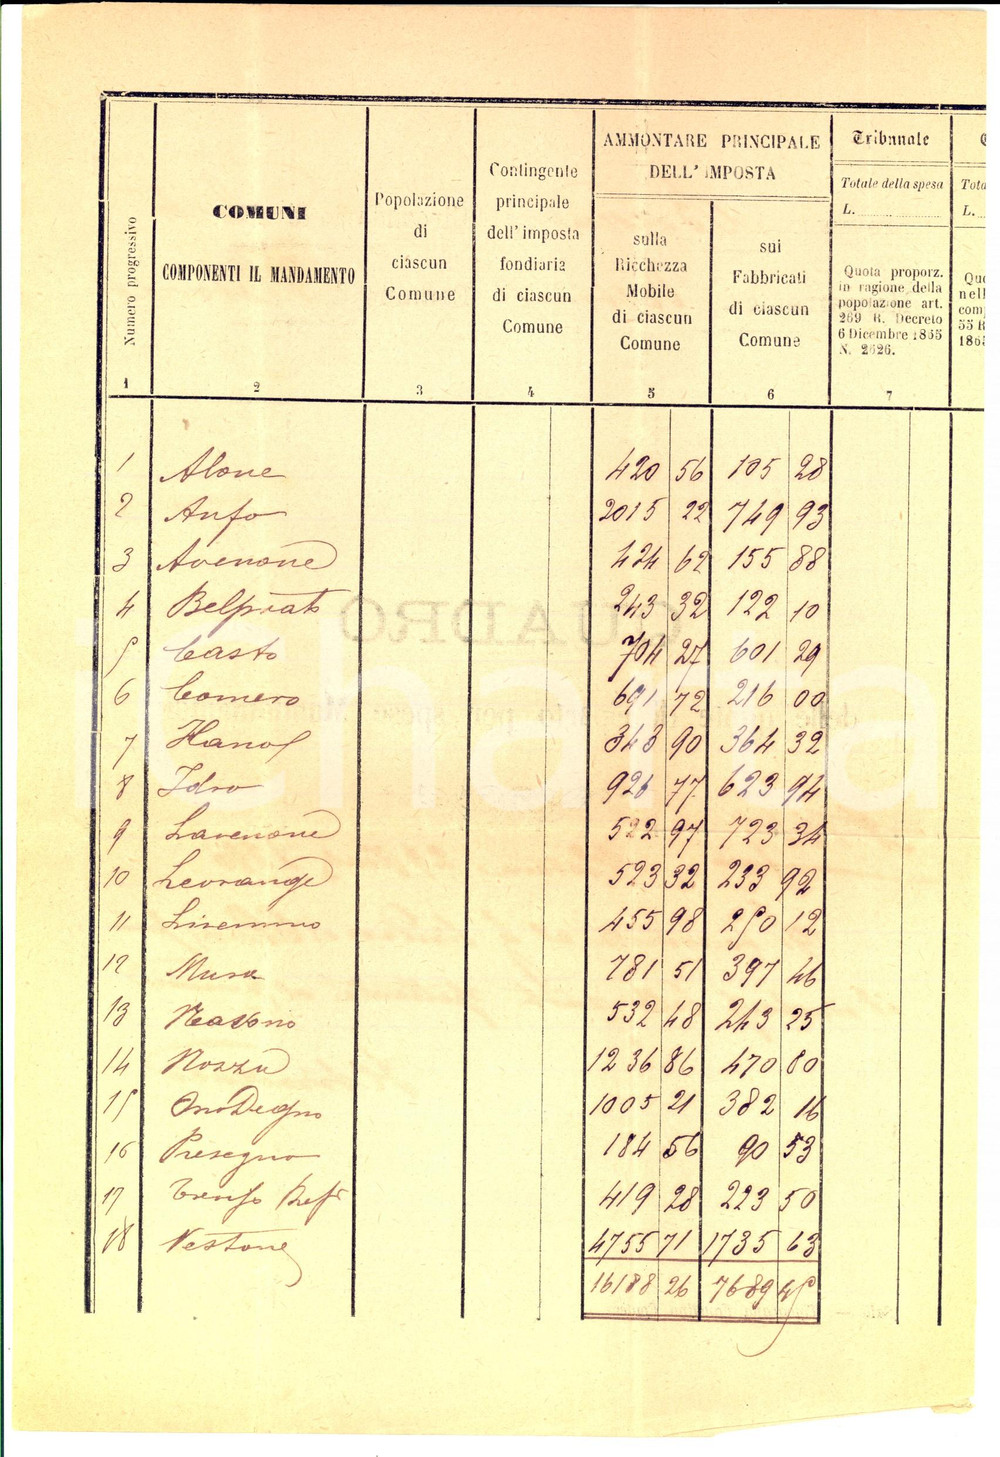 Numero progressivo
1
COMUNI
COMPONENTI IL MANDAMENTO
2
Popolazione
di
ciascun
Comune
3
Contingente
principale
dell' imposta
fondiaria
di ciascun
Comune
4
AMMONTARE PRINCIPALE
DELL' IMPOSTA
sulla
Ricchezza
Mobile
di ciascun
Comune
5
sui
Fabbricati
di ciascun
Comune
6
Tribunale
Totale della spesa
L.
Quota proporz.
in ragione della
popolazione art.
269 R. Decreto
6 Dicembre 1865
N. 2626.
7
1 Alone 420 56 105 28
2 Anfo 2015 22 749 93
3 Avenone 424 62 155 88
4 Belprato 243 32 122 10
5 Casto 704 27 601 29
6 Comero 691 72 216 00
7 Hano 343 90 364 32
8 Idro 926 77 623 94
9 Lavenone 522 97 723 34
10 Levrange 523 32 233 92
11 Livemmo 455 98 250 12
12 Mura 781 51 397 46
13 532 48 243 25
14 Nozza 1236 86 470 80
15 Ono Degno 1005 21 382 16
16 Presegno 184 56 90 53
17 419 28 223 50
18 Vestone 4755 71 1735 63
16188 26 7689 45
QUADRO